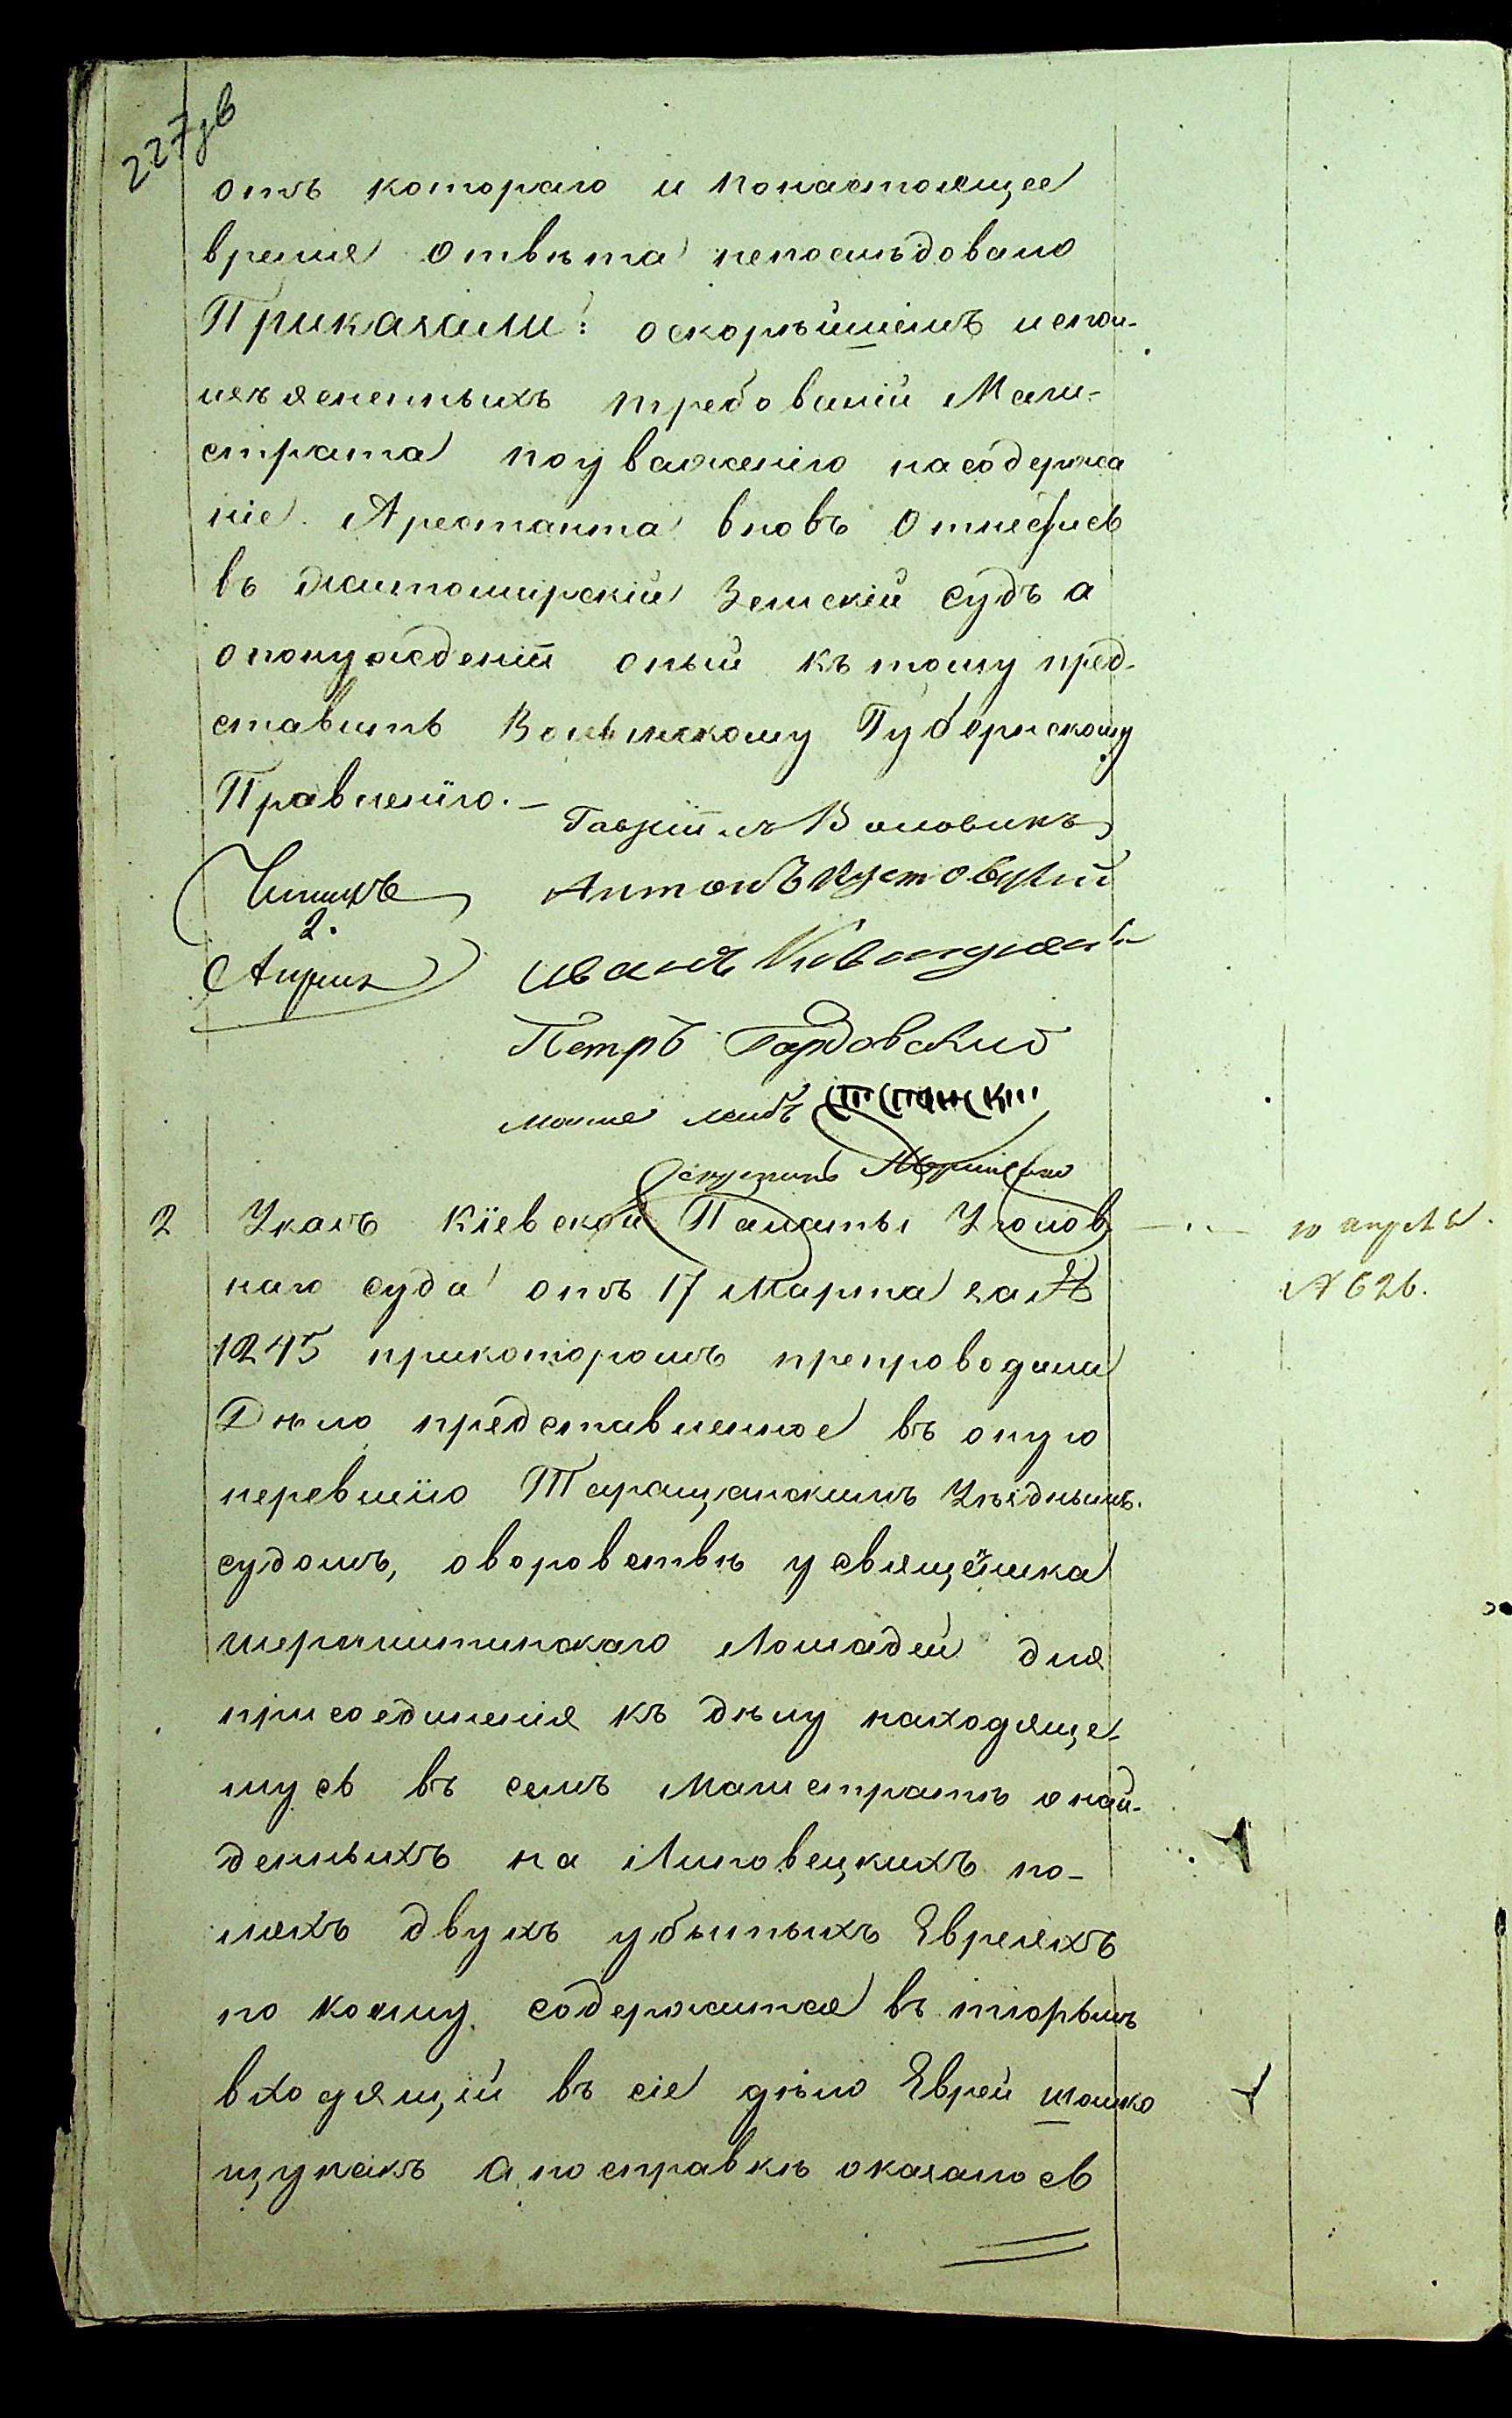 227 зв
отъ котораго и понастоящее
время ответа непоследовало
Приказали: оскорѣйшемъ испол-
изъясненныхъ требованій Маги-
страта поуваженію насодержа
ніе Арестанта вновь отнестись
въ житомирскій Земскій судъ а
опонужденіи оный къ тому пред-
ставить Волынскому Губернскому
Правленію.-
Гаврiилъ Воловикъ
Антонъ Кустовскій
Иванъ
Петръ Гардовский
мошко лейбъ
2 Указъ Кіевской Палаты Уголов
наго суда отъ 17 Марта за №
1245 прикоторомъ препроводила
Дѣло представленное въ оную
наревизію Таращанскимъ Уѣзднымъ
судомъ, оворовствѣ у священика
лошадей для
присоединенія къ дѣлу находяще-
муся въ семъ Магистратѣ о най-
денныхъ на Липовецкихъ по-
ляхъ двухъ убитыхъ Евреяхъ
по коему содержится въ тюрьмѣ
входящій въ сіе дѣло Еврей мошко
щупакъ а по справкѣ оказалось
10 апреля
№ 626.